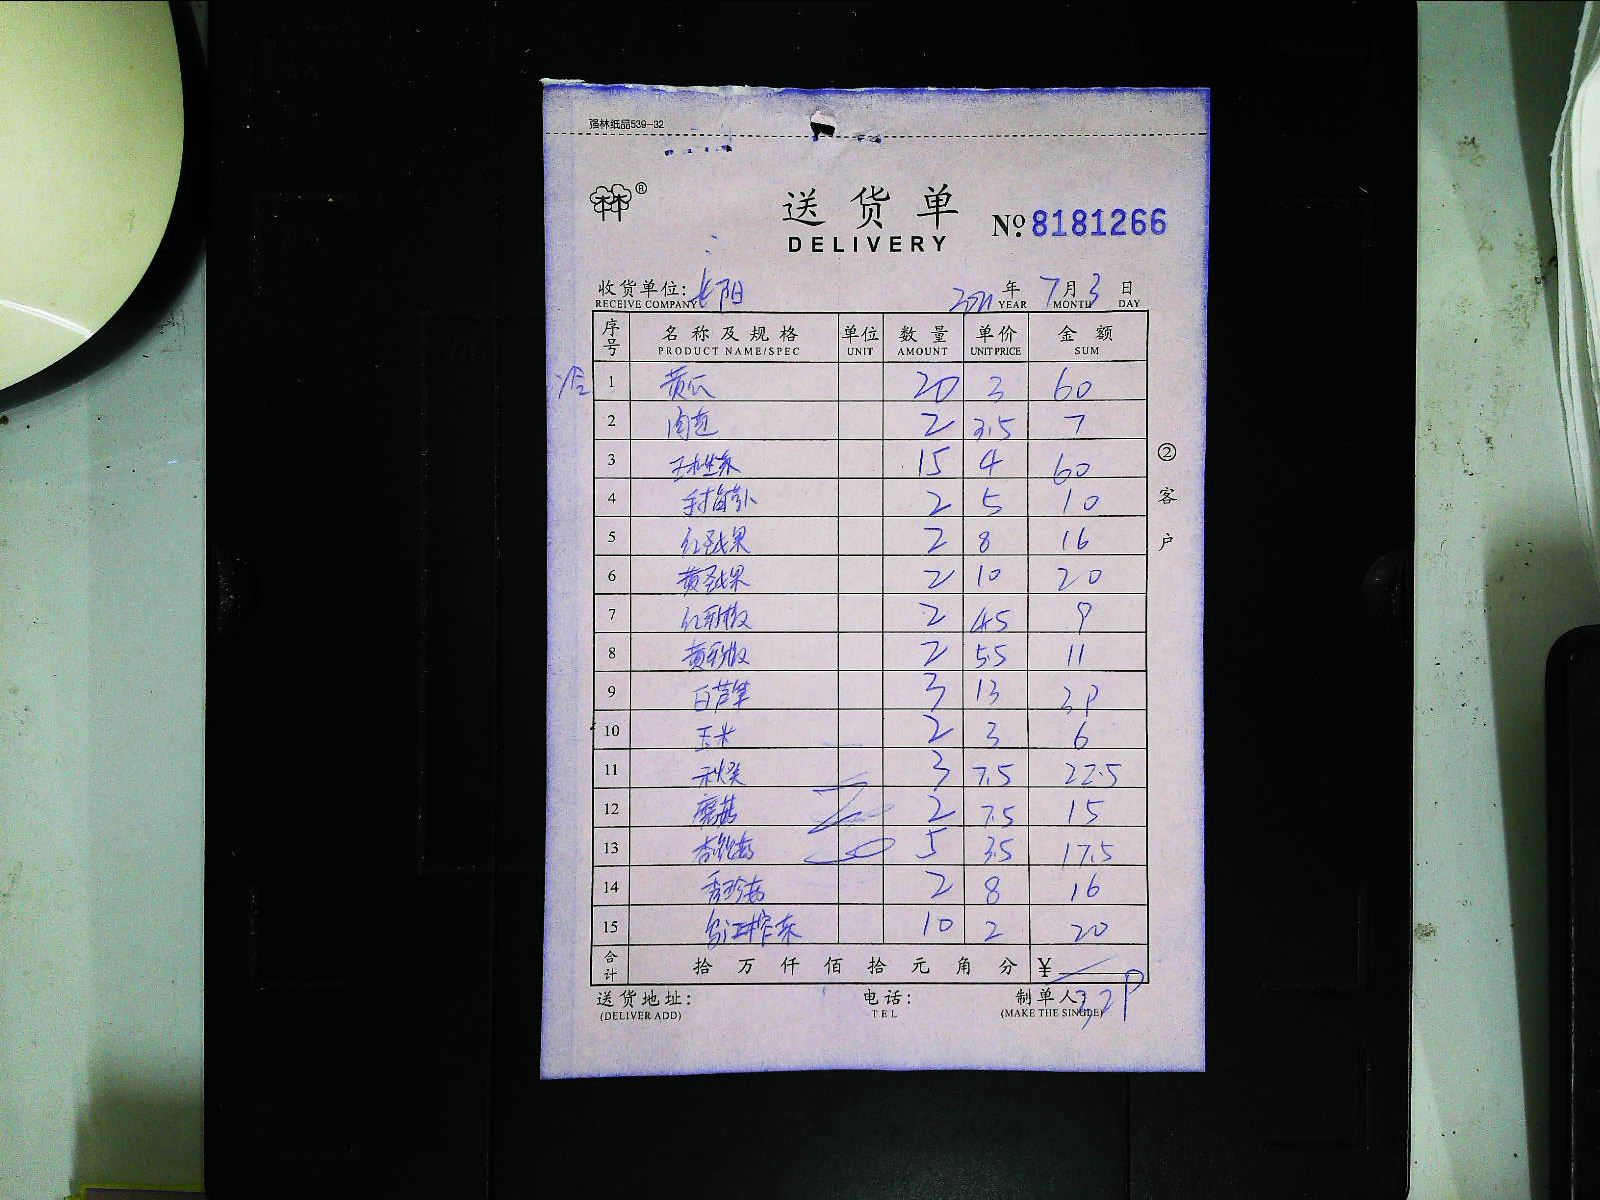 强林纸品539-32
林林®
送货单
DELIVERY
No. 8181266
收货单位: 长阳 2021 年 7 月 3 日
RECEIVE COMPANY YEAR MONTH DAY
序号 名称及规格 单位 数量 单价 金额
PRODUCT NAME/SPEC UNIT AMOUNT UNIT PRICE SUM
1 黄瓜 20 3 60
2 2 3.5 7
3 15 4 60
4 2 5 10
5 红圣女果 2 8 16
6 黄圣女果 2 10 20
7 红彩椒 2 4.5 9
8 黄彩椒 2 5.5 11
9 白芦笋 3 13 39
10 玉米 2 3 6
11 秋葵 3 7.5 22.5
12 蘑菇 2 7.5 15
13 杏鲍菇 5 3.5 17.5
14 秀珍菇 2 8 16
15 乌江榨菜 10 2 20
合计 拾万仟佰拾元角分 ¥
329
送货地址: 电话: 制单人
(DELIVER ADD) TEL (MAKE THE SINGLE)
②客户